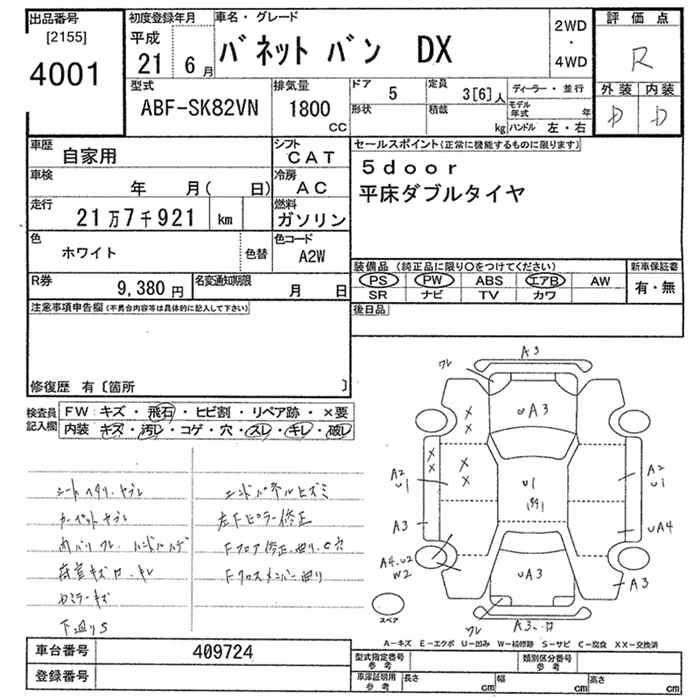 出品番号
[2155]
4001
初度登録年月
平成
21 6月
車名・グレード
バネット バン DX
2WD
・
4WD
評価点
R
外装 内装
D D
型式
ABF-SK82VN
排気量
1800
CC
ドア
5
定員
3[6]人
形状
積載
kg
ディーラー・並行
モデル年式 年
ハンドル 左・右
車歴
自家用
シフト
CAT
車検
年 月( 日)
冷房
AC
走行
21万7千921 km
燃料
ガソリン
色
ホワイト
色替
色コード
A2W
R券
9,380円
名変通知期限
月 日
セールスポイント(正常に機能するものに限ります)
5door
平床ダブルタイヤ
装備品(純正品に限り○をつけてください)
PS PW ABS エアB AW
SR ナビ TV カワ
新車保証書
有・無
後日品
注意事項申告欄(不男台内容等は具体的に記入して下さい)
修復歴 有〔箇所 〕
検査員
記入欄
FW:キズ・飛石・ヒビ割・リペア跡・×要
内装:キズ・汚レ・コゲ・穴・スレ・キレ・破レ
シートヘタリ、ヤブレ
カーペットヤブレ
内バリワレ、ハンドルハゲ
荷室キズ
ミラーキズ
下廻りS
エンドパネルヒズミ
左Fピラー修正
Fフロア修正、曲り
Fクロスメンバー曲り
ワレ
A3
UA3
A2
U1
A3
A4.U2
W2
U1
A2
U1
UA4
UA3
A3
ワレ
A3
スペア
A−キズ E−エクボ U−凹み W−補修跡 S−サビ C−腐食 XX−交換済
車台番号
409724
登録番号
型式指定番号
参考
類別区分番号
参考
車庫証明用
参考
長さ cm
幅 cm
高さ cm